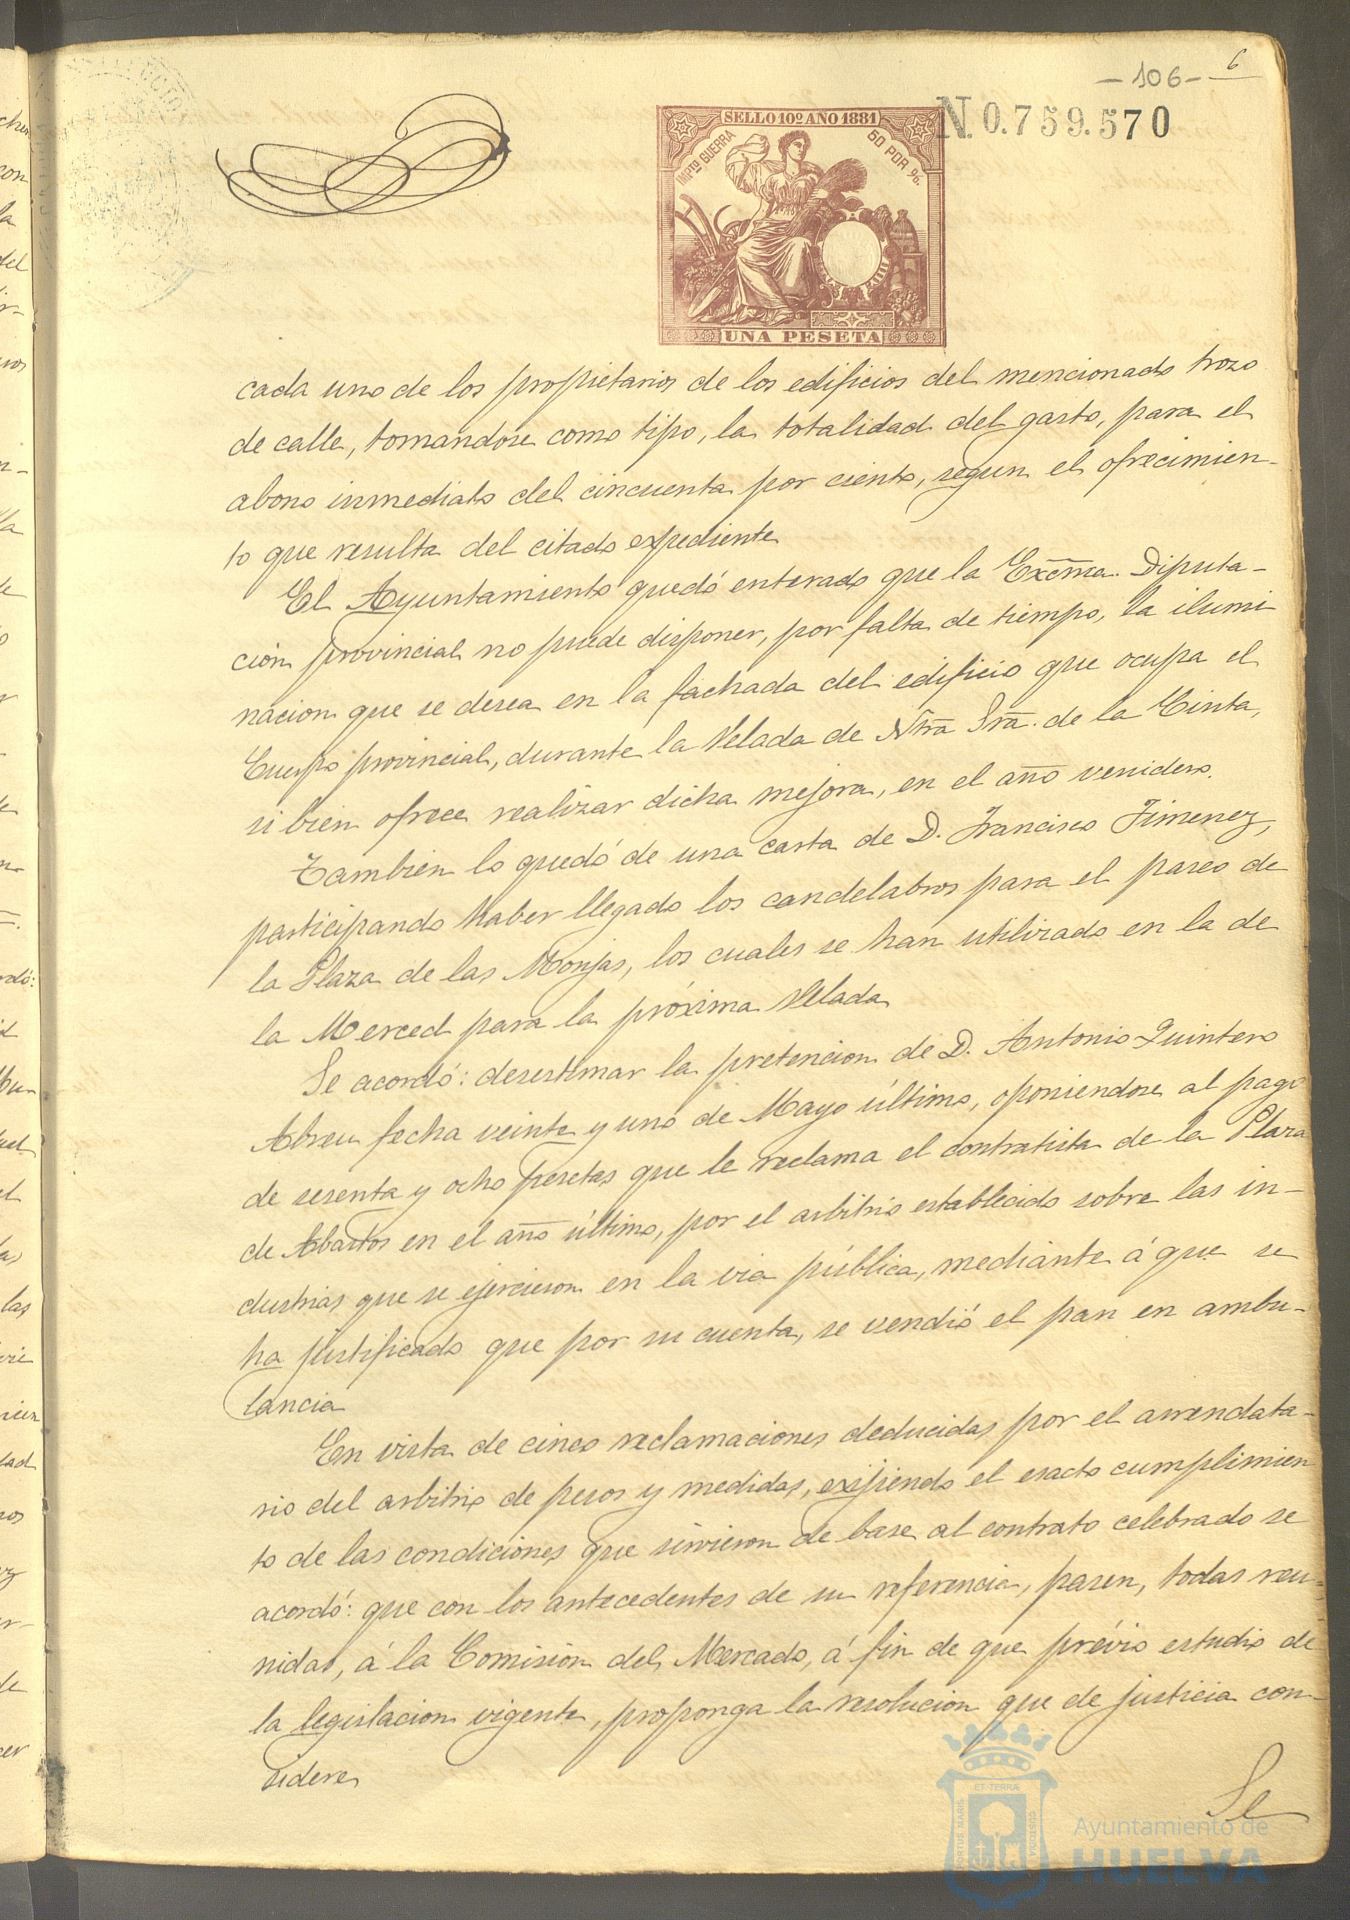 - 106 -
6
N. 0.759.570
SELLO 10º AÑO 1881
IMPtO GUERRA
50 POR %
UNA PESETA
cada uno de los propietarios de los edificios del mencionado trozo
de calle, tomandose como tipo, la totalidad del gasto, para el
abono inmediato del cincuenta por ciento, segun el ofrecimien-
to que resulta del citado expediente
El Ayuntamiento quedó enterado que la Excma. Diputa-
ción provincial no puede disponer, por falta de tiempo, la ilumi
nacion que se desea en la fachada del edificio que ocupa el
Cuerpo provincial, durante la Velada de Ntra Sra. de la Cinta,
si bien ofrece realizar dicha mejora, en el año venidero.
Tambien lo quedó de una carta de D. Francisco Jimenez,
participando haber llegado los candelabros para el paseo de
la Plaza de las Monjas, los cuales se han utilizado en la de
la Merced para la próxima Velada
Se acordó: desestimar la pretencion de D. Antonio Quintero
Abreu fecha veinte y uno de Mayo último, oponiendose al pago
de sesenta y ocho pesetas que le reclama el contratista de la Plaza
de Abastos en el año último, por el arbitrio establecido sobre las in-
dustrias que se ejercieron en la via pública, mediante á que se
ha justificado que por su cuenta, se vendió el pan en ambu-
lancia
En vista de cinco reclamaciones deducidas por el arrendata-
rio del arbitrio de pesos y medidas, exijiendo el esacto cumplimien
to de las condiciones que sirvieron de base al contrato celebrado se
acordó: que con los antecedentes de su referencia, pasen, todas reu-
nidas, á la Comisión del Mercado, á fin de que prévio estudio de
la legislacion vigente, proponga la resolucion que de justicia con-
sidere
Se
ET TERRÆ
PORTUS MARIS
CUSTODIA
Ayuntamiento de
HUELVA